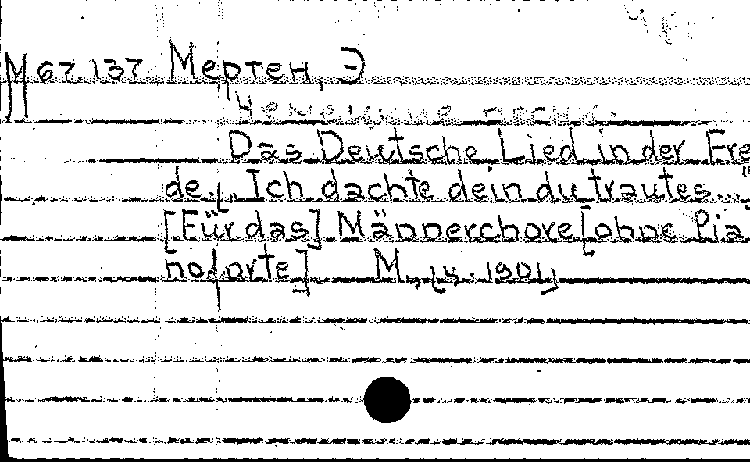 М 67.137 Мертен, Э
Немецкие песни.
Das Deutsche Lied in der Fre
de. „Ich dachte dein du trautes..."
[Für das] Männerchore [ohne Pia
noforte] М., 1901,